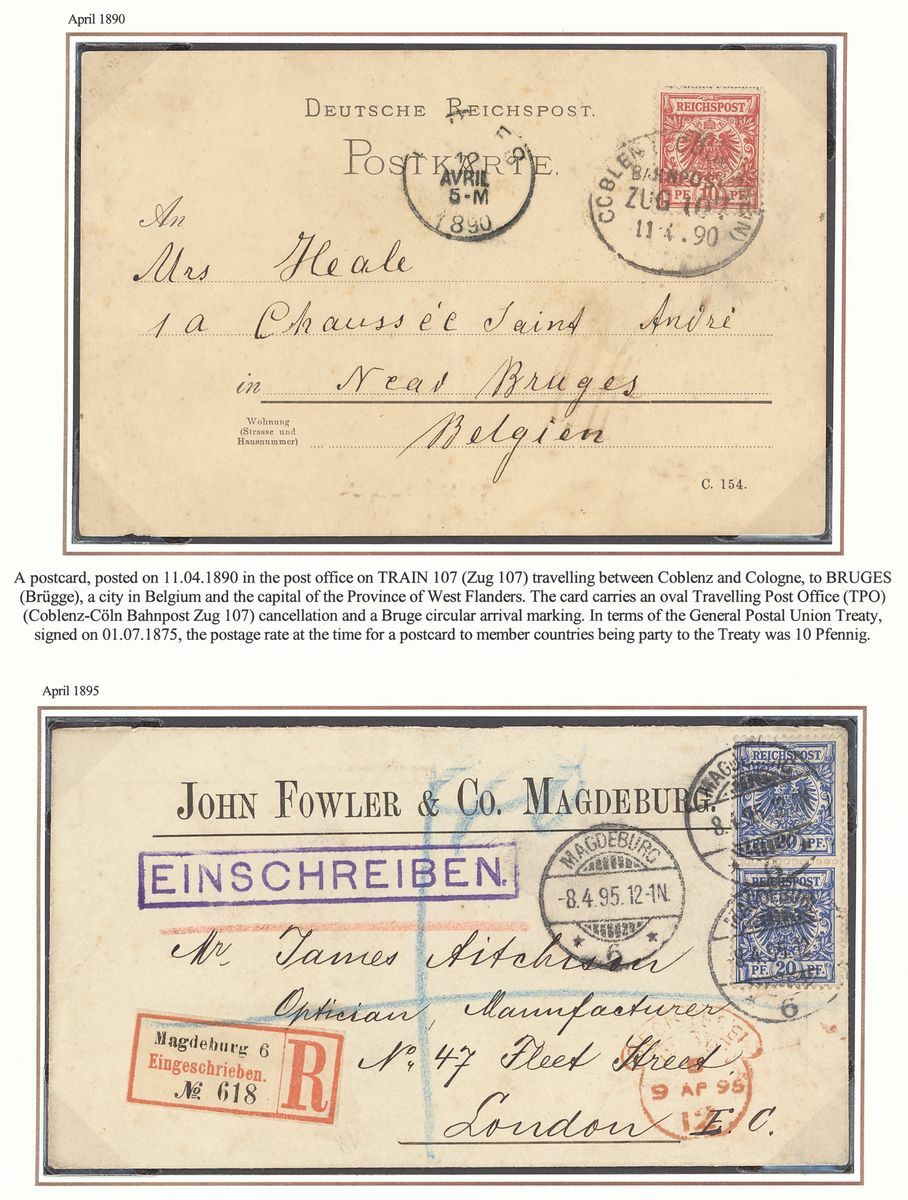 April 1890
DEUTSCHE REICHSPOST.
POSTKARTE.
REICHSPOST
PF. 10 PF.
12
AVRIL
5-M
1890
BAHNPOST
ZUG 107
11.4.90
An
Mrs Heale
1a Chaussée Saint André
in Near Bruges
Wohnung
(Strasse und
Hausnummer)
Belgien
C. 154.
A postcard, posted on 11.04.1890 in the post office on TRAIN 107 (Zug 107) travelling between Coblenz and Cologne, to BRUGES
(Brügge), a city in Belgium and the capital of the Province of West Flanders. The card carries an oval Travelling Post Office (TPO)
(Coblenz-Cöln Bahnpost Zug 107) cancellation and a Bruge circular arrival marking. In terms of the General Postal Union Treaty,
signed on 01.07.1875, the postage rate at the time for a postcard to member countries being party to the Treaty was 10 Pfennig.
April 1895
JOHN FOWLER & CO. MAGDEBURG.
REICHSPOST
20 PF.
EINSCHREIBEN.
MAGDEBURG
-8.4.95.12-1N.
* 6 *
REICHSPOST
PF. 20 PF.
6
Mr James Aitchison
Optician, Manufacturer
No 47 Fleet Street
London E.C.
Magdeburg 6
Eingeschrieben.
№ 618
R
9 AP 95
12